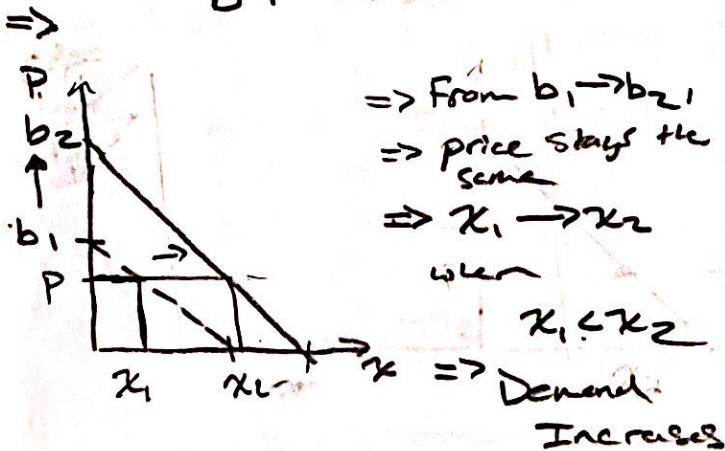 =>
P
b₂
b₁
P
x₁ x₂ x
=> From b₁ → b₂,
=> price stays the
same
=> x₁ → x₂
when
x₁ < x₂
=> Demand
Increases